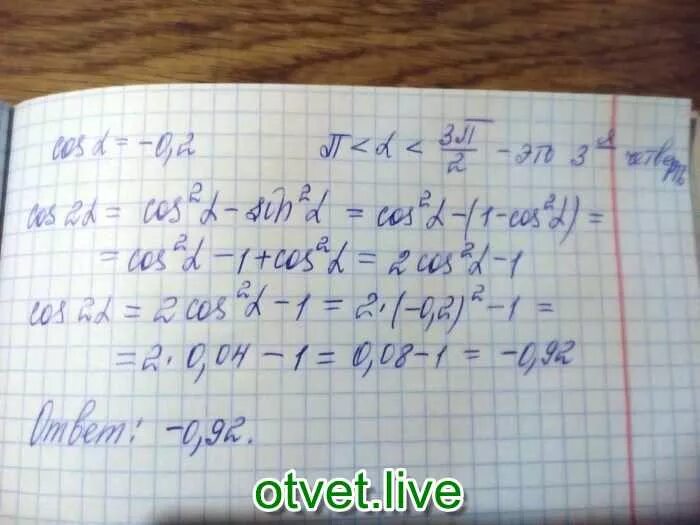 cos α = -0,2 π < α < 3π/2 - это 3я четверть
cos 2α = cos²α - sin²α = cos²α - (1 - cos²α) =
= cos²α - 1 + cos²α = 2 cos²α - 1
cos 2α = 2 cos²α - 1 = 2 · (-0,2)² - 1 =
= 2 · 0,04 - 1 = 0,08 - 1 = -0,92
Ответ: -0,92.
otvet.live